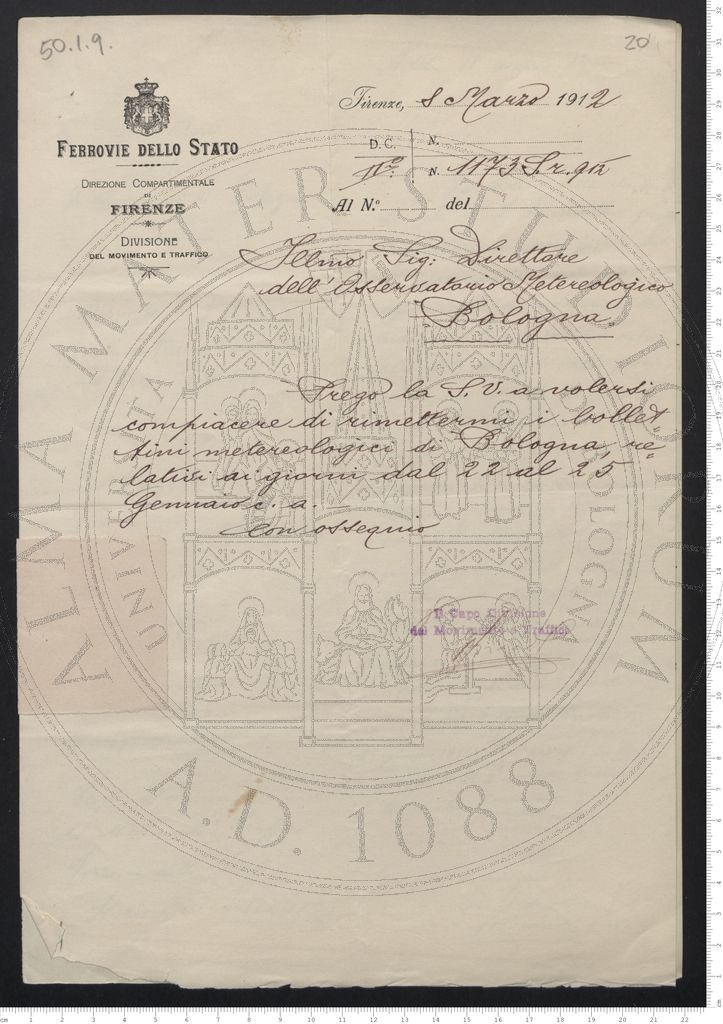 50.1.9.
20
FERROVIE DELLO STATO
DIREZIONE COMPARTIMENTALE
DI
FIRENZE
DIVISIONE
DEL MOVIMENTO E TRAFFICO
Firenze, 8 Marzo 1912
D.C. N.
N. 1173 S.r. 912
Al N.° del
Illmo Sig: Direttore
dell'Osservatorio Metereologico
Bologna
Prego la S.V. a volersi
compiacere di rimettermi i bollet=
tini metereologici di Bologna, re=
lativi ai giorni dal 22 al 25
Gennaio c. a.
Con ossequio
Il Capo Divisione
del Movimento e Traffico
ALMA MATER STUDIORUM
UNIVERSITÀ BOLOGNA
A.D. 1088